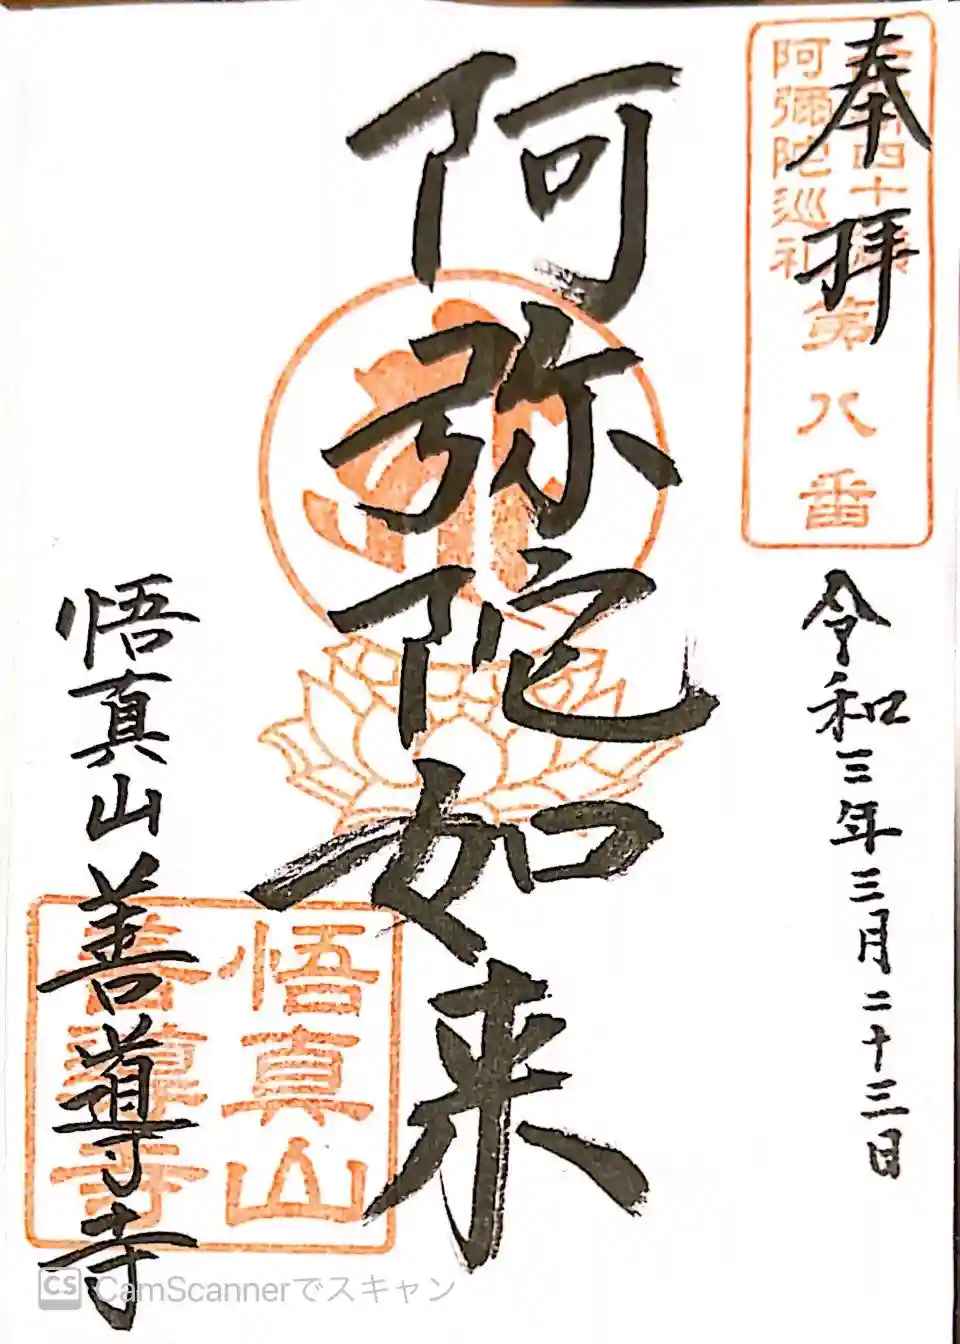 奉拝
四十
阿彌陀巡礼
第八番
令和三年三月二十三日
阿弥陀如来
悟真山善導寺
悟真山
善導寺
CS CamScannerでスキャン